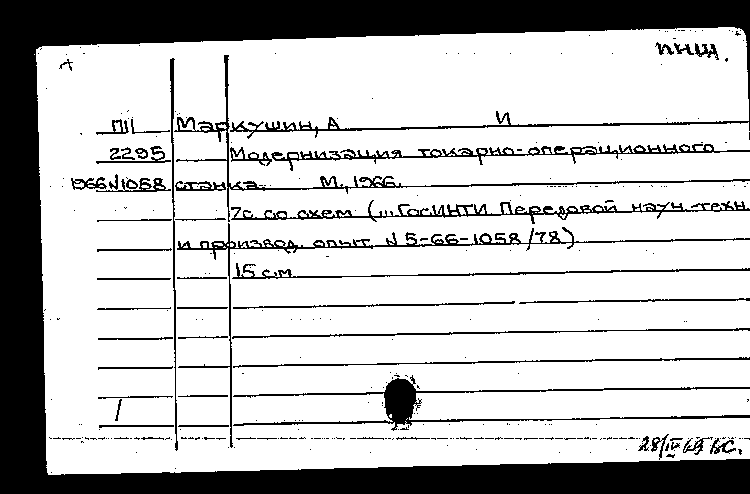 пнщ.
П11 Маркушин, А И
2295 Модернизация токарно-операционного
1966N1058 станка. М., 1966.
7с. со схем (... ГосИНТИ Передовой науч.-техн.
и производ. опыт. N 5-66-1058/78)
15 см
/
28/IV 69 ВС.